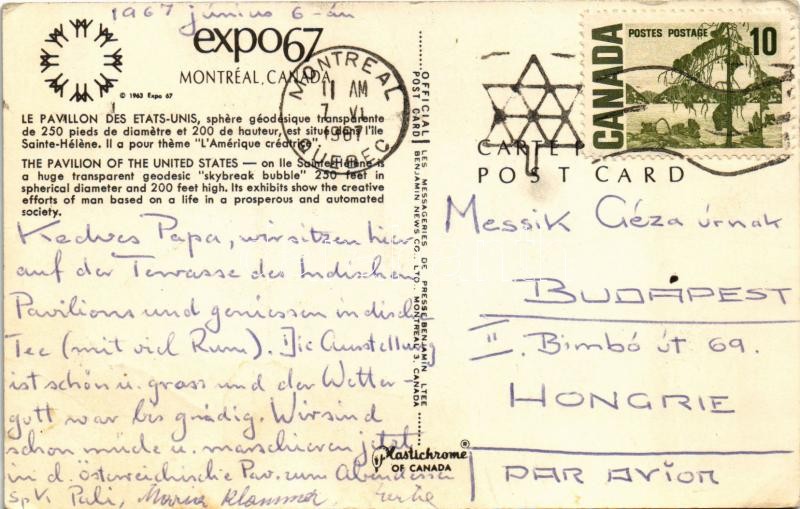 1967 június 6-án
expo67
MONTRÉAL, CANADA
© 1963 Expo 67
LE PAVILLON DES ETATS-UNIS, sphère géodésique transparente
de 250 pieds de diamètre et 200 de hauteur, est situé dans l'Ile
Sainte-Hélène. Il a pour thème "L'Amérique créatrice"
THE PAVILION OF THE UNITED STATES — on Ile Sainte-Hélène is
a huge transparent geodesic "skybreak bubble" 250 feet in
spherical diameter and 200 feet high. Its exhibits show the creative
efforts of man based on a life in a prosperous and automated
society.
Kedves Papa, wir sitzen hier
auf der Terrasse des Indischen
Pavilions und geniessen indisch
Tee (mit viel Rum). Die Ausstellung
ist schön u. gross und der Wetter-
gott war bis gnädig. Wir sind
schon müde u. marschieren jetzt
in d. österreichische Pav. zum Abendessen
Pali, Maria Klammer
OFFICIAL POST CARD
LES MESSAGERIES DE PRESSE BENJAMIN LTEE
BENJAMIN NEWS CO., LTD., MONTREAL 3, CANADA
Plastichrome®
OF CANADA
MONTREAL
11 AM
7 VI
1967
QUEBEC
POSTES POSTAGE
10
CANADA
CARTE
POST CARD
Messik Géza úrnak
BUDAPEST
II. Bimbó út 69.
HONGRIE
PAR AVION